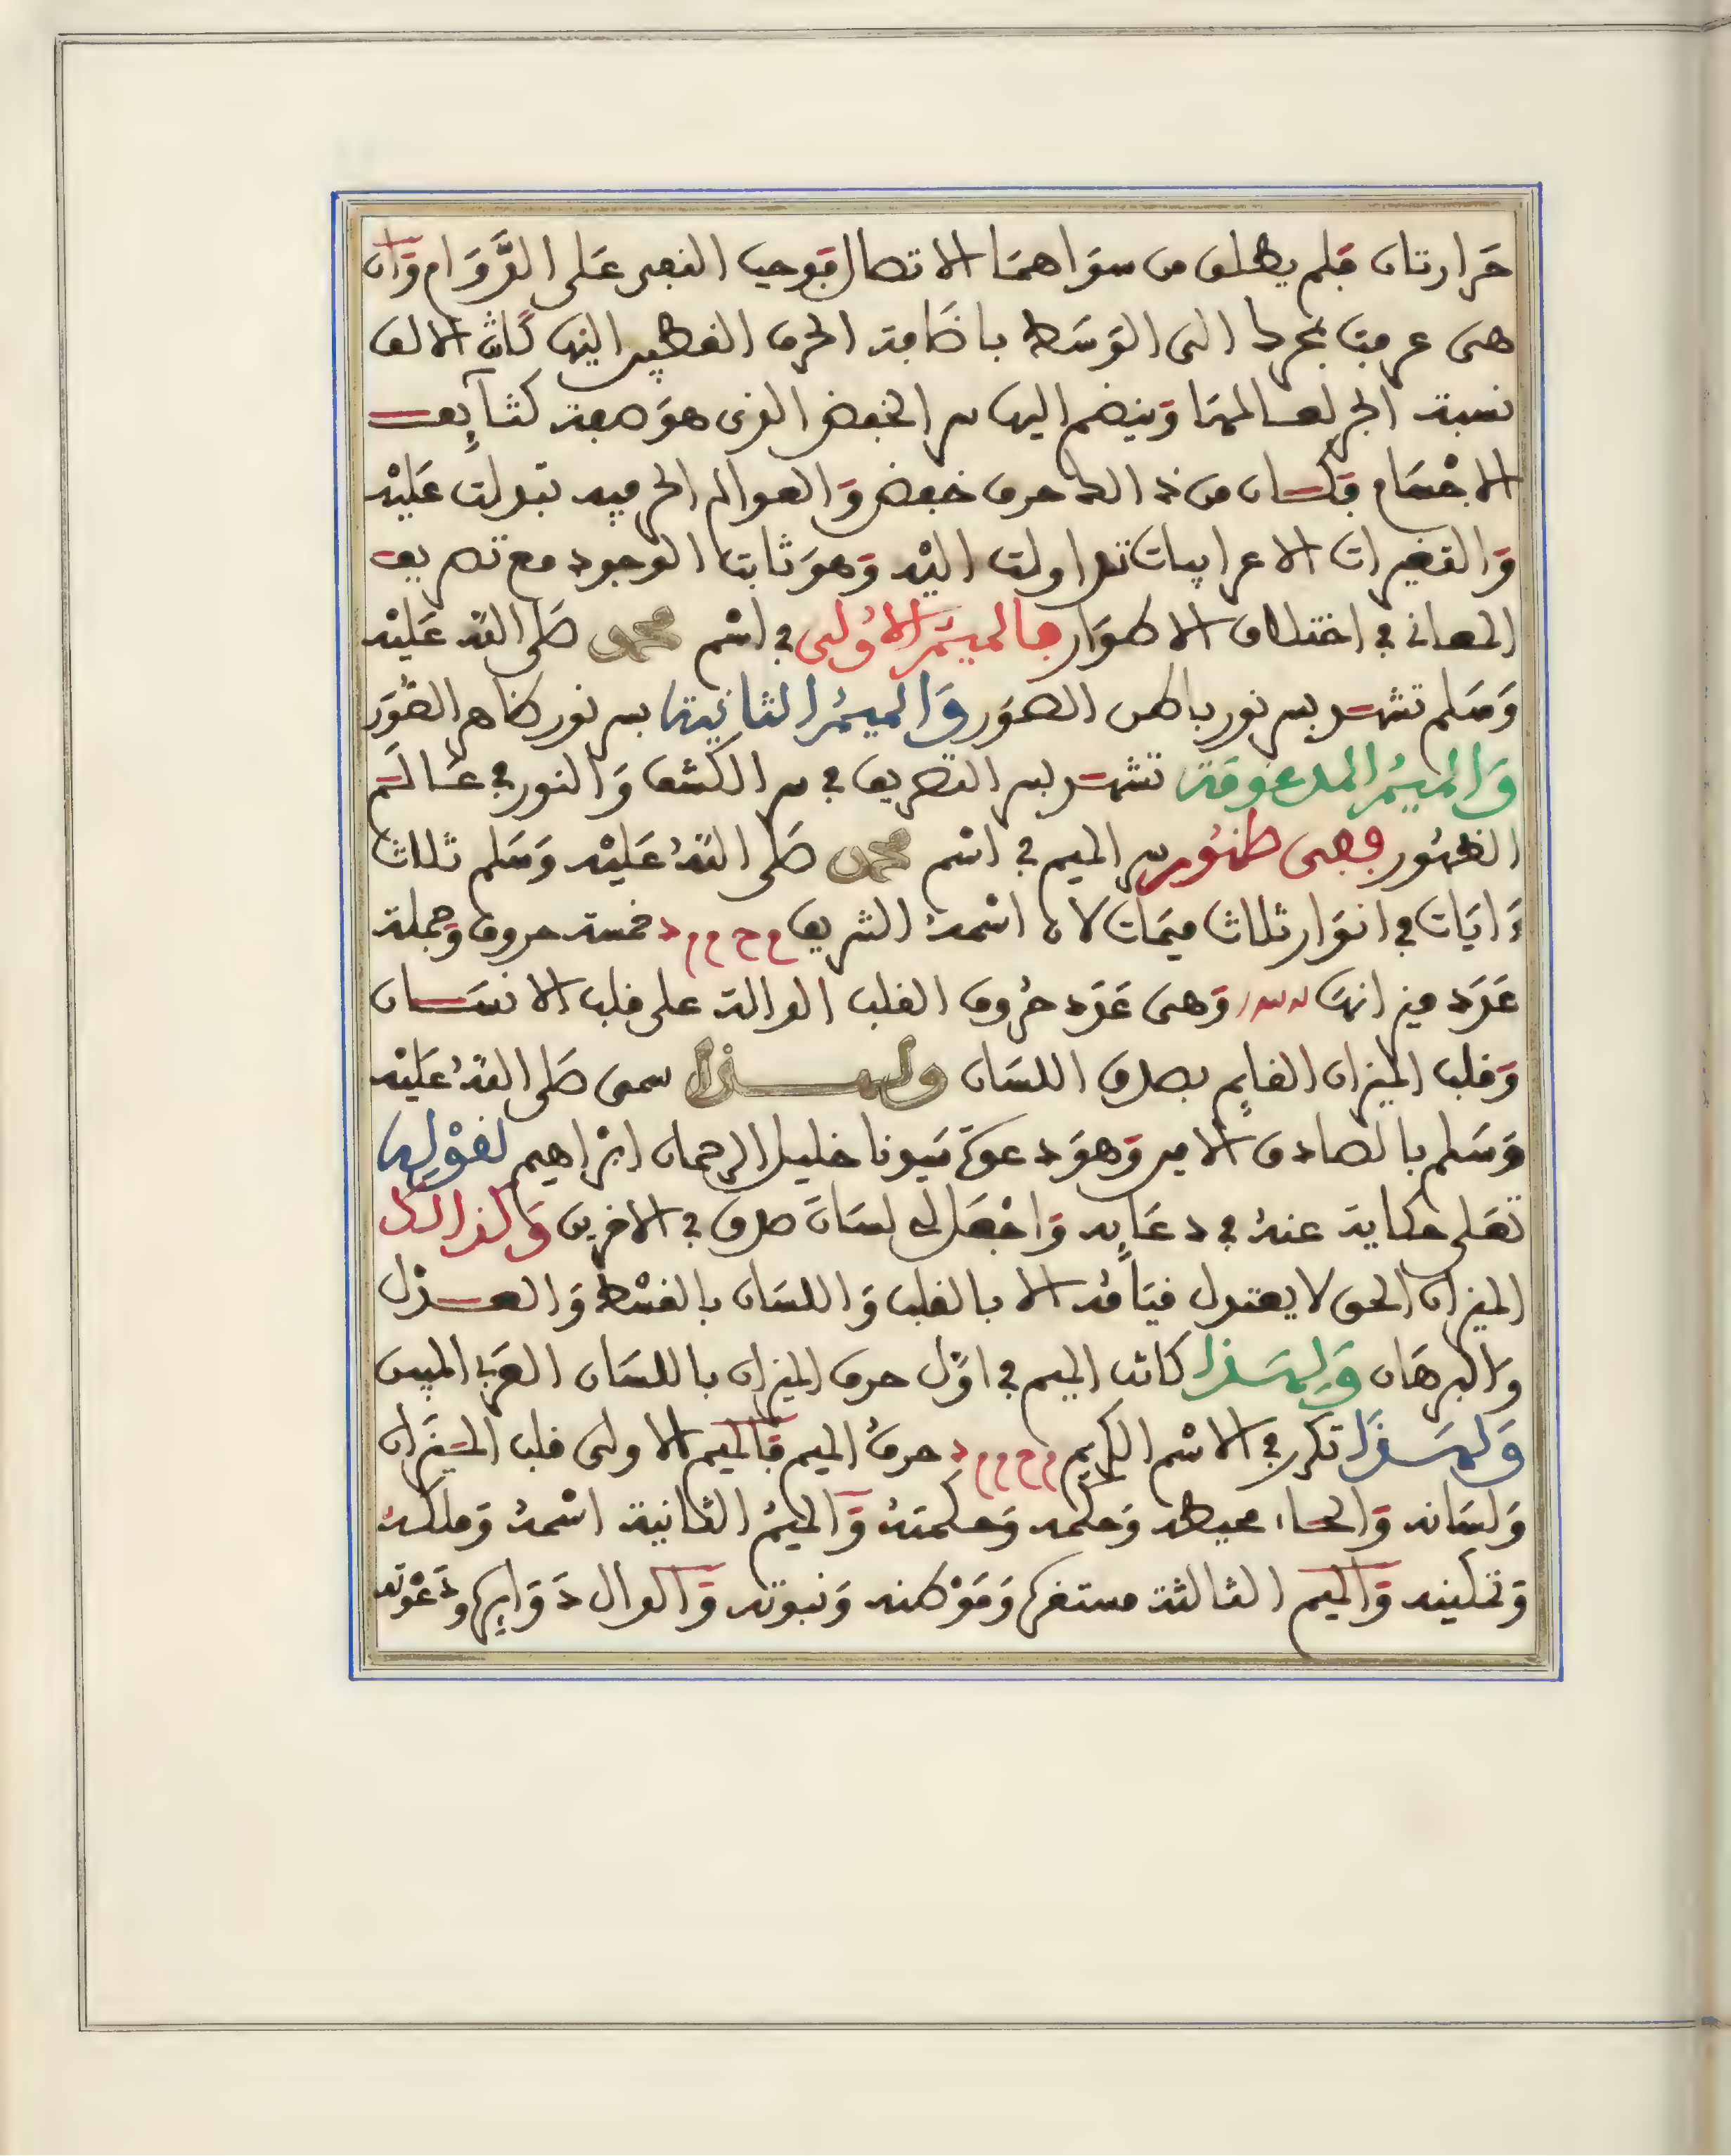 حَرارتان فلم يطلق من سوَاهمَا الا تصال فوجب النفي عَلى الدَّوَام وَان
هى عرفت بحرد الى الوَسَط باضافة الحرف القطبي اليها كان الالف
نسبة الجر لعالمها وَينضم اليها سر الخفض الذى هوَ صفة كثآيف
الاجْسَام فكان من ذالك حرف خفض وَالعوالم الحرفيه تبدلت عَليْه
وَالتغيرات الاعرابيات تداولت اليْه وَهوَ ثابت الوجود مع تصريف
المعانى في اختلاف الاطوَار فالميمُ الاُولى في اسْم محمد صَلى اللهُ عَليْه
وَسَلم تشهد بسر نور باطن الصوَر وَالميمُ الثانية بسر نور ظاهر الصُّوَر
وَالميمُ المدغوفة تشهد بسر التصريف في سر الكشف وَالنور في عَالَم
الظهُور فهى ظهُور سر الميم في اسْم محمد صَلى اللهُ عَليْه وَسَلم ثلاث
ءَايَات في انوَار ثلاث ميمَات لان اسْمهُ الشريف م ح م م د خمسة حروف وَجملة
عَدَد ميزانهَا وَهى عَدَد حُروف القلب الدالة على قلب الانسَان
وَقلب الميزان القايم بصدق اللسَان ولهذا سمى صَلى اللهُ عَليْه
وَسَلم بالصادق الامين وَهوَ دعوَة سَيدنا خليل الرحمان ابرْاهيم لقوْله
تعَلى حكاية عنهُ في دعَايه وَاجْعَل لى لسَانَ صدق في الاخرين وَكذالك
الميزان الحق لا يعتدل قيَامُه الا بالقلب وَاللسَان بالقسْط وَالعدْل
والبرهَان وَلِهَذا كانت الميم في اوَّل حرف الميزان باللسَان العَربي المبين
وَلهَذَا تكرر في الاسْم الكريم م ح م م د حرفُ الميم فَالميم الاولى قلب الميزان
وَلسَانه وَالحاء محيطه وَحكمه وَحكمتهُ وَالميمُ الثانية اسْمهُ وَملكهُ
وَتمكينه وَالميم الثالثة مستقره وَمَوْطنه وَنبوته وَالدال دَوَايره وَدَعْوته